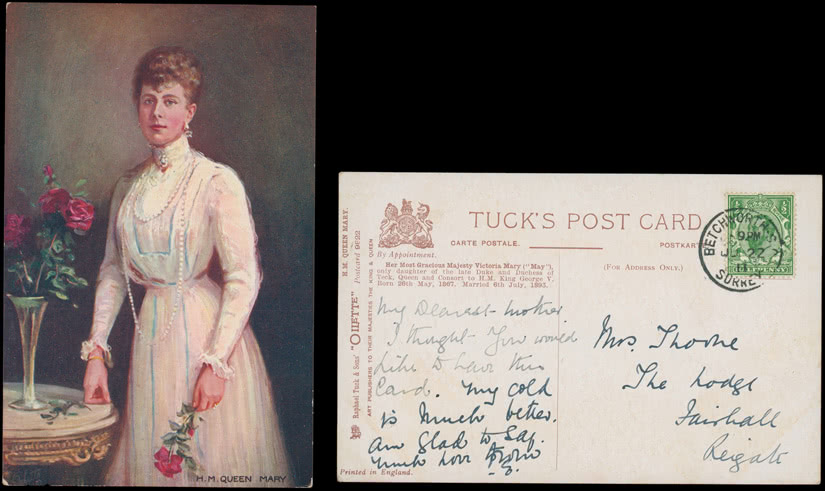 H.M. QUEEN MARY
TUCK'S POST CARD
CARTE POSTALE.
POSTKART
By Appointment.
(FOR ADDRESS ONLY.)
Her Most Gracious Majesty Victoria Mary ("May"),
only daughter of the late Duke and Duchess of
Teck, Queen and Consort to H.M. King George V.
Born 26th May, 1867. Married 6th July, 1893.
H.M. QUEEN MARY.
Raphael Tuck & Sons' "OILETTE" Postcard 9622
ART PUBLISHERS TO THEIR MAJESTIES THE KING & QUEEN
BETCHWORTH
9 PM
SURREY
My Dearest mother
I thought you would
like to have this
Card. My cold
is Much better.
am Glad to Say.
Much love from
Mrs. Thorne
The Lodge
Fairhall
Reigate
Printed in England.